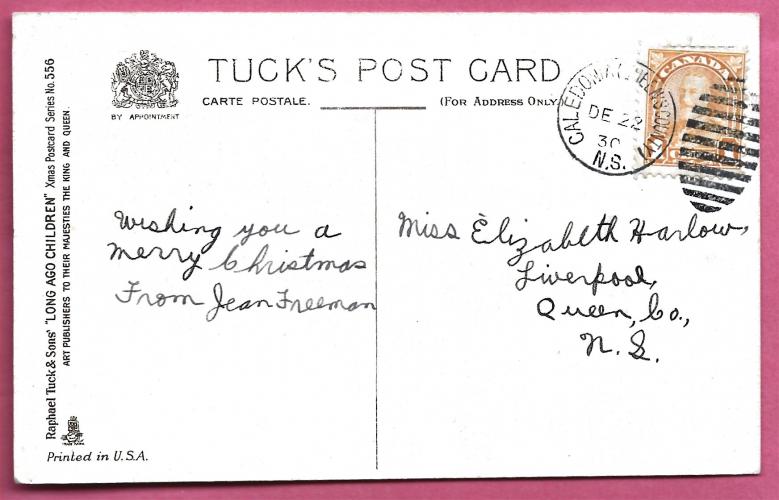 TUCK'S POST CARD
CARTE POSTALE.
(FOR ADDRESS ONLY
BY APPOINTMENT
Raphael Tuck & Sons' "LONG AGO CHILDREN" Xmas Postcard Series No. 556
ART PUBLISHERS TO THEIR MAJESTIES THE KING AND QUEEN.
CANADA
DE 22
30
N.S.
Wishing you a
merry Christmas
From Jean Freeman
Miss Elizabeth Harlow,
Liverpool,
Queen, Co.,
N.S.
Printed in U.S.A.